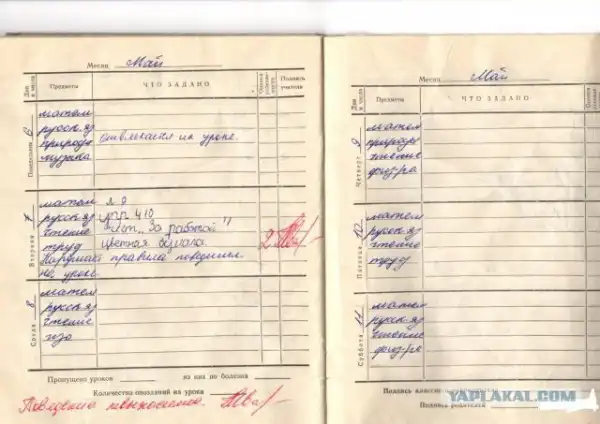 Месяц Май
Дни и числа Предметы ЧТО ЗАДАНО Оценка успеваемости Подпись учителя
Понедельник 6
матем
русск. яз
природа Отвлекается на уроке.
музыка
Вторник 7
матем
русск. яз упр 410
чтение чит. "За работой"
труд цветная бумага. 2
Нарушает правила поведения
на уроке.
Среда 8
матем
русск. яз
чтение
Пропущено уроков из них по болезни
Количество опозданий на уроки
Поведение
Месяц Май
Дни и числа Предметы ЧТО ЗАДАНО
Четверг 9
матем
природа
чтение
физ-ра
Пятница 10
матем
русск. яз
чтение
труд
Суббота 11
матем
русск. яз
чтение
физ-ра
Подпись
Подпись родителей
YAPLAKAL.COM